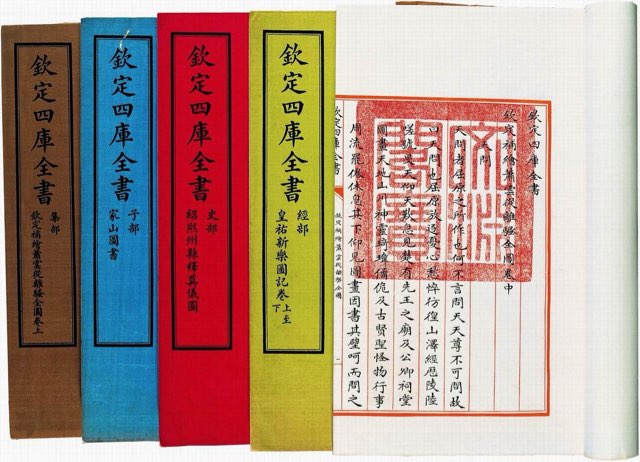 欽定四庫全書
欽定補繪蕭雲從離騷全圖卷中
天問
天問者屈原之所作也何不言問天天尊不可問故
曰天問也屈原放逐憂心愁悴彷徨山澤經歷陵陸
嗟號旻天仰天歎息見楚有先王之廟及公卿祠堂
圖畫天地山川神靈琦瑋僪佹及古賢聖怪物行事
周流罷倦休息其下仰見圖畫因書其壁呵而問之
欽定四庫全書
欽定補繪蕭雲從離騷全圖
文淵閣寶
欽定四庫全書
經部
皇祐新樂圖記卷上至下
欽定四庫全書
史部
紹熙州縣釋奠儀圖
欽定四庫全書
子部
家山圖書
欽定四庫全書
集部
欽定補繪蕭雲從離騷全圖卷上